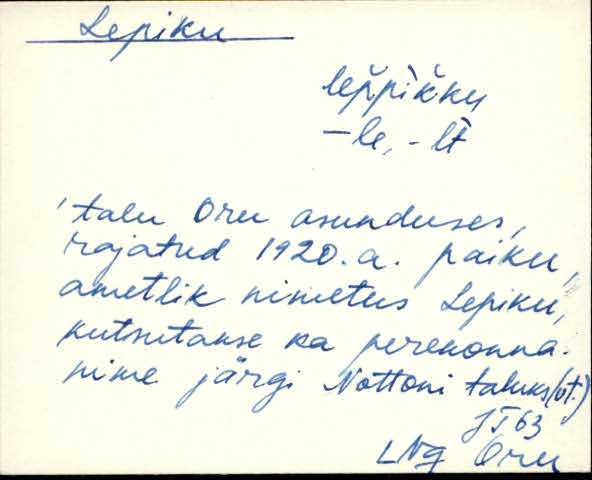 Lepiku
lep̆pìk̆ku
-le, -lt̀
'talu Oru asunduses,
rajatud 1920. a. paiku,
ametlik nimetus Lepiku,
kutsutakse ka perekonna-
nime järgi Nottoni taluks (vt.)
JT63
LNg Oru